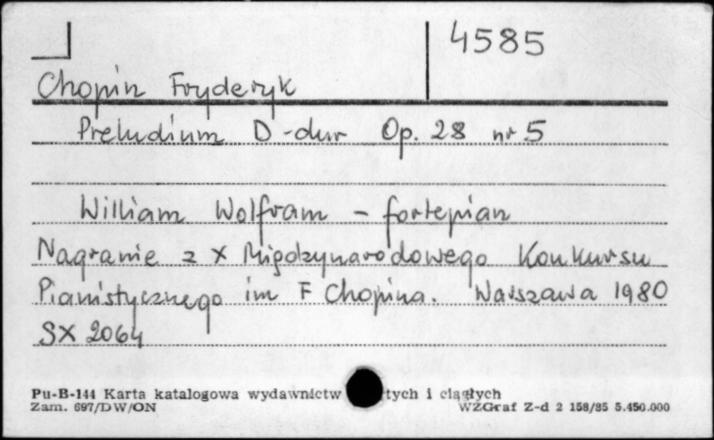 4585
Chopin Fryderyk
Preludium D-dur Op. 28 nr 5
William Wolfram - fortepian
Nagranie z X Międzynarodowego Konkursu
Pianistycznego im F Chopina. Warszawa 1980
SX 2064
Pu-B-144 Karta katalogowa wydawnictw tych i ciągłych
Zam. 697/DW/ON WZGraf Z-d 2 158/85 5.450.000